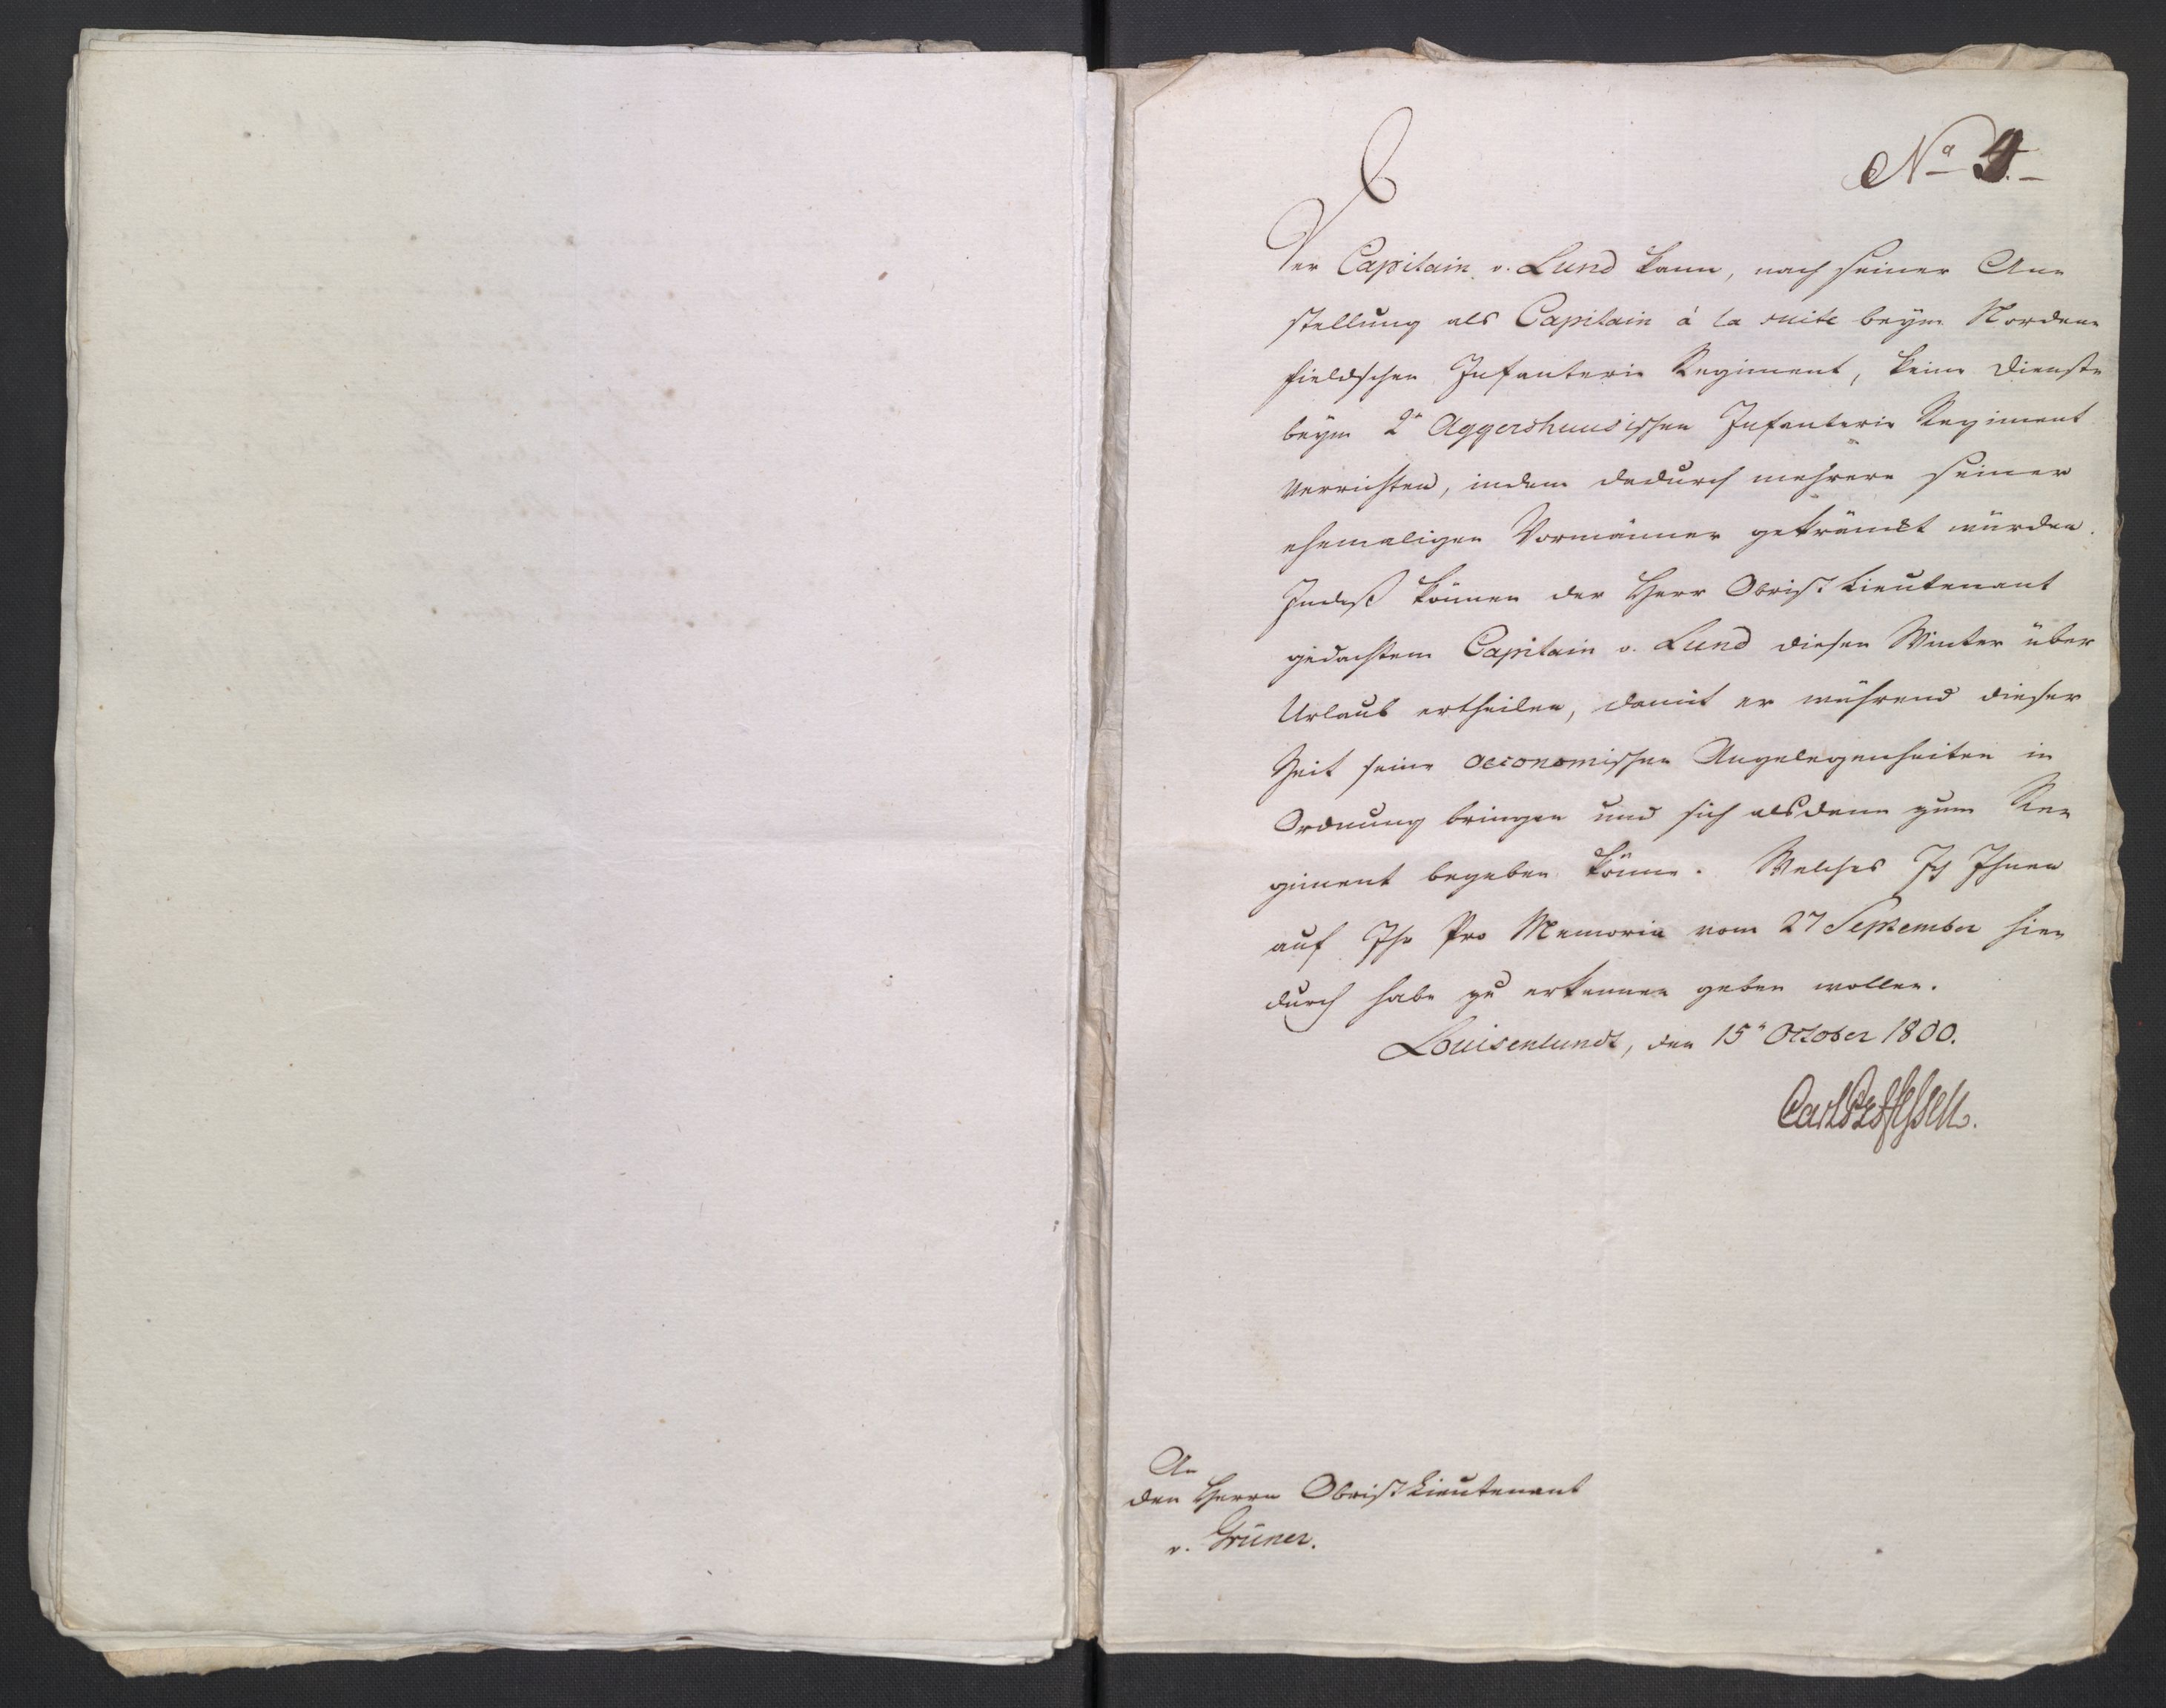 No 4.
Der Capitain v. Lund kann, nach seiner An-
stellung als Capitain à la suite beym Norden-
fieldschen Infanterie Regiment, keine Dienste
beym 2n Aggershuusischen Infanterie Regiment
verrichten, indem dadurch mehrere seiner
ehemaligen Vormänner gekränckt würden.
Indeß können der Herr Obristlieutenant
gedachtem Capitain v. Lund diesen Winter über
Urlaub ertheilen, damit er während dieser
Zeit seine oeconomischen Angelegenheiten in
Ordnung bringen und sich alsdann zum Re-
giment begeben könne. Welches Ich Ihnen
auf Ihr Pro Memoria vom 27 September hie-
durch habe zu erkennen geben wollen.
Louisenlundt, den 15n October 1800.
Carl PzHessen.
An
den Herrn Obristlieutenant
v. Grüner.